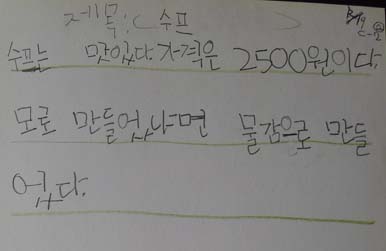 제목: 수프
수프는 맛있다. 가격은 2500원이다.
모로 만들었냐면 물감으로 만들
었다.